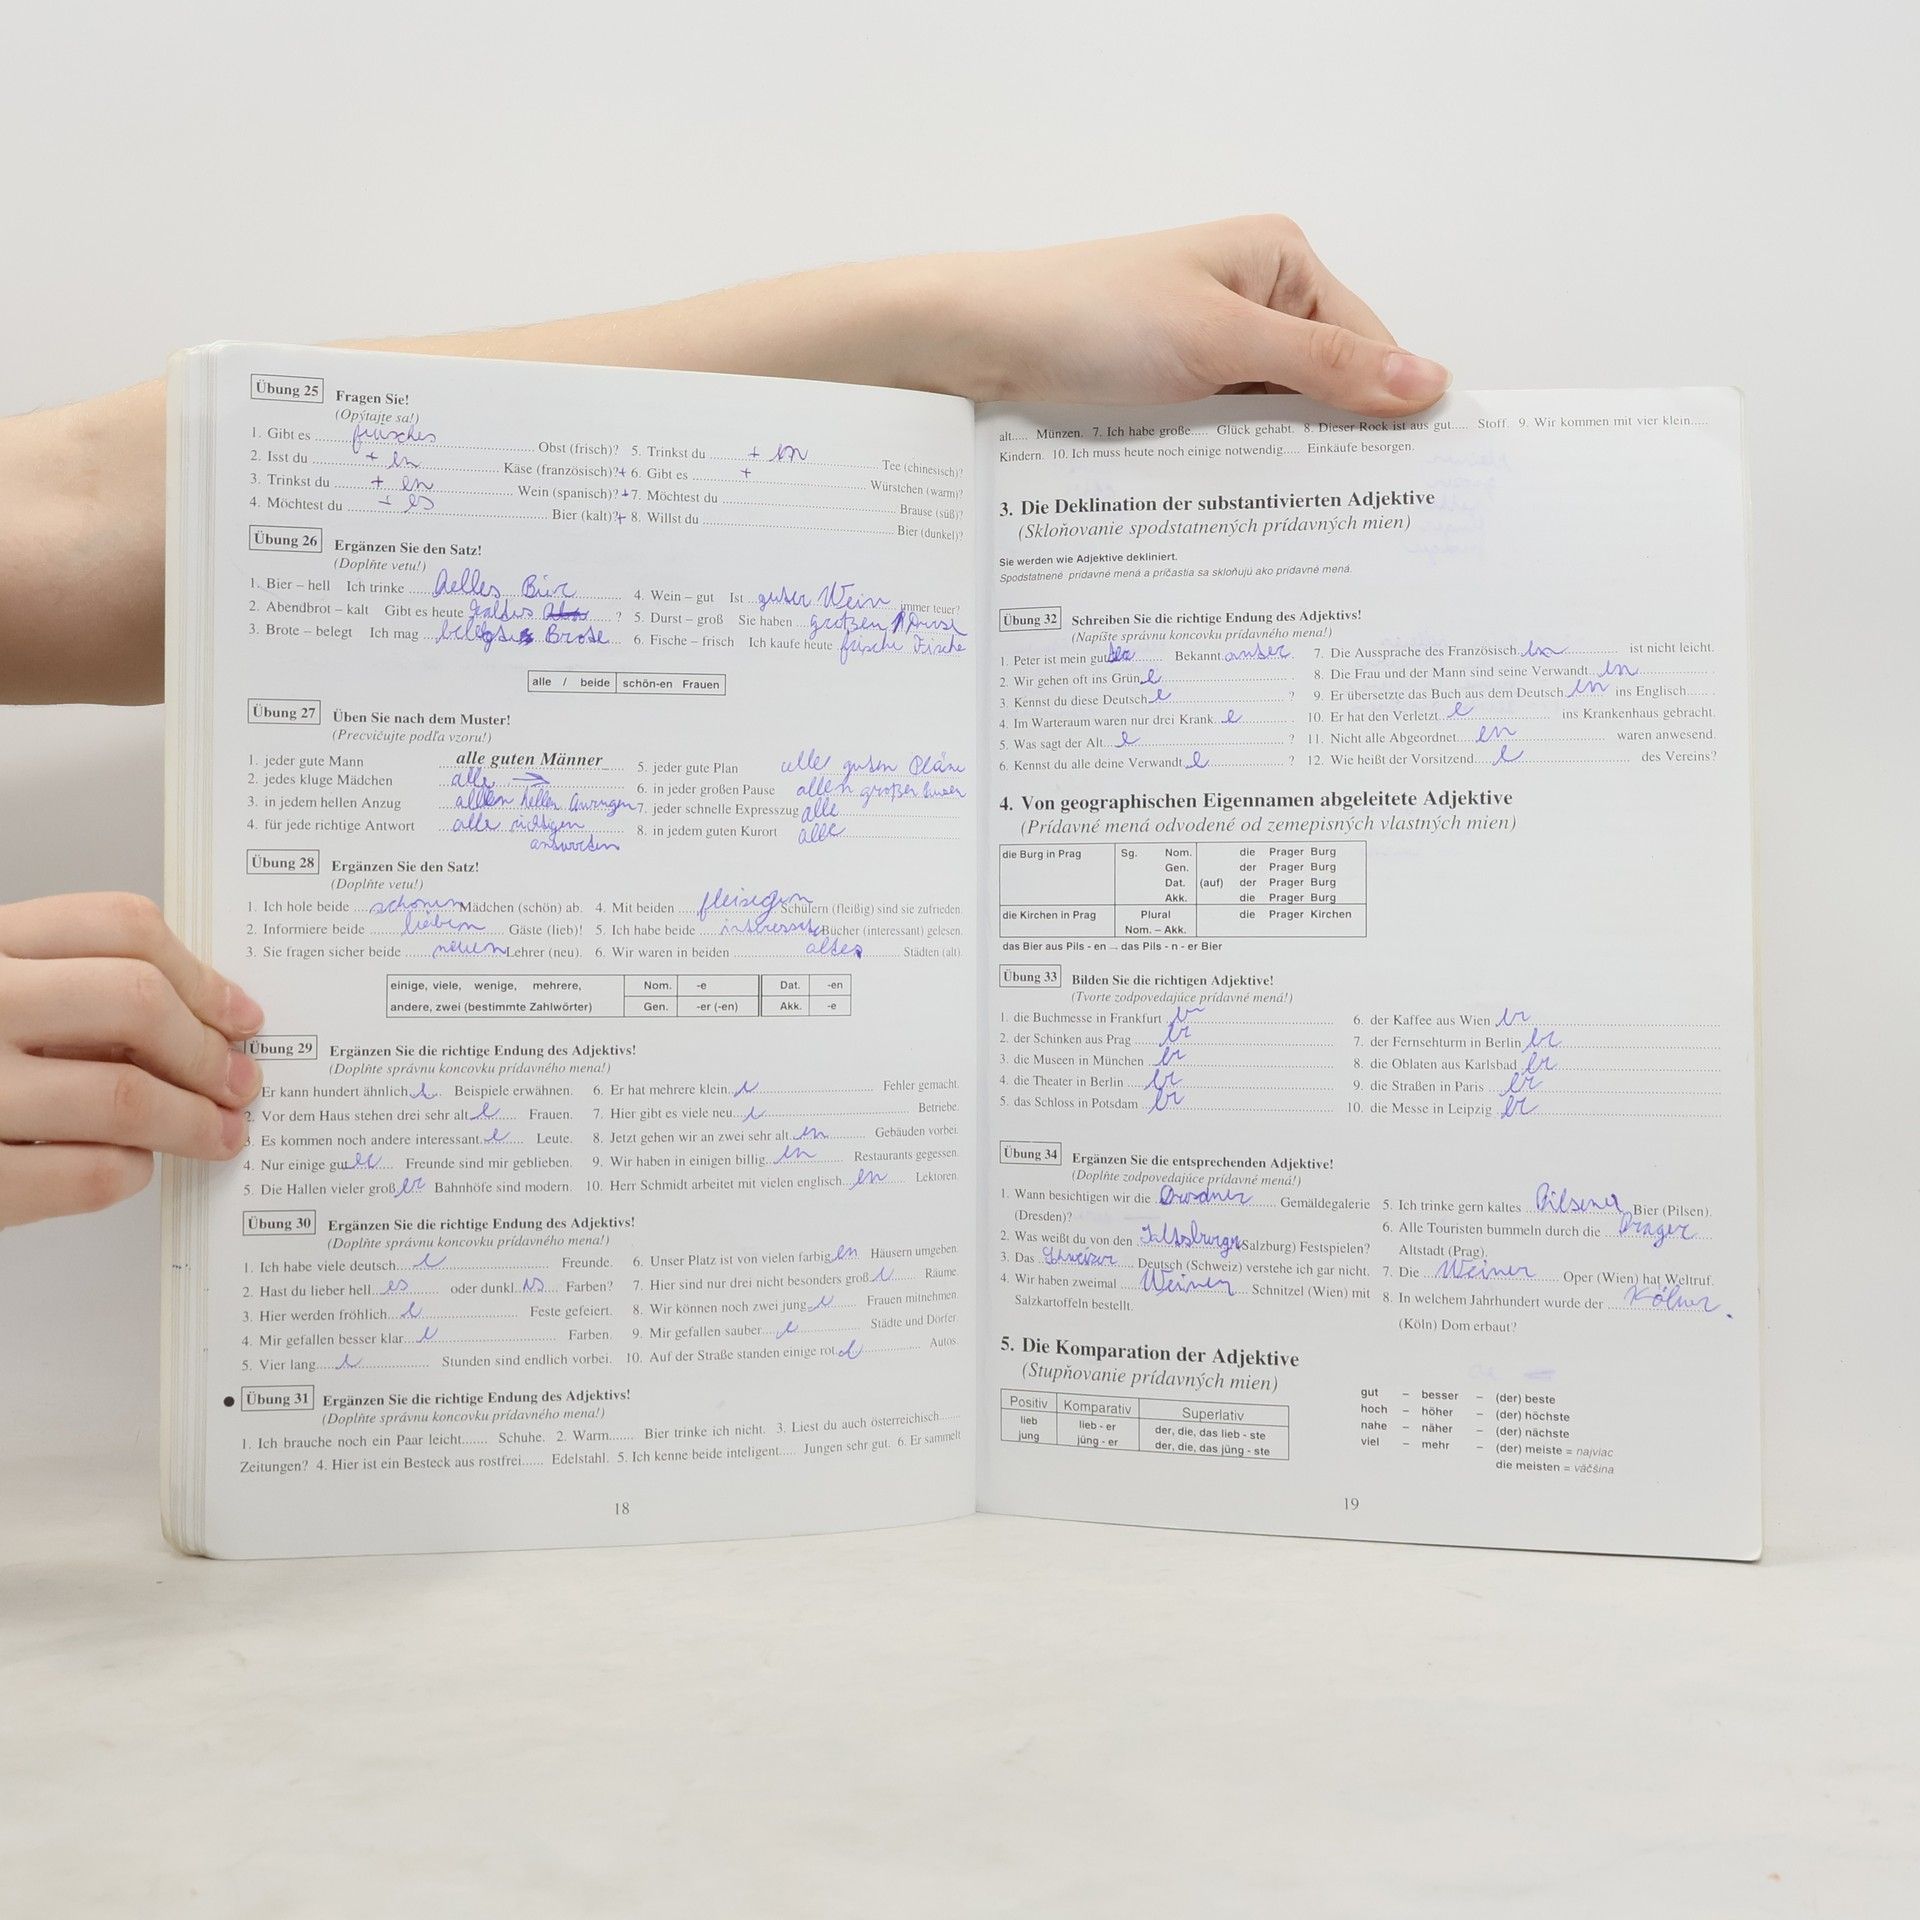 Übung 25 Fragen Sie!
(Opýtajte sa!)
1. Gibt es frisches Obst (frisch)? 5. Trinkst du + en Tee (chinesisch)?
2. Isst du + en Käse (französisch)?+ 6. Gibt es + Würstchen (warm)?
3. Trinkst du + en Wein (spanisch)?+ 7. Möchtest du Brause (süß)?
4. Möchtest du + es Bier (kalt)?+ 8. Willst du Bier (dunkel)?
Übung 26 Ergänzen Sie den Satz!
(Doplňte vetu!)
1. Bier – hell Ich trinke helles Bier 4. Wein – gut Ist guter Wein immer teuer?
2. Abendbrot – kalt Gibt es heute ? 5. Durst – groß Sie haben großen Durst
3. Brote – belegt Ich mag Brote 6. Fische – frisch Ich kaufe heute frische Fische
alle / beide schön-en Frauen
Übung 27 Üben Sie nach dem Muster!
(Precvičujte podľa vzoru!)
1. jeder gute Mann alle guten Männer 5. jeder gute Plan alle guten Pläne
2. jedes kluge Mädchen alle 6. in jeder großen Pause allen großen
3. in jedem hellen Anzug allen hellen 7. jeder schnelle Expresszug alle
4. für jede richtige Antwort alle richtigen 8. in jedem guten Kurort alle
antworten
Übung 28 Ergänzen Sie den Satz!
(Doplňte vetu!)
1. Ich hole beide schonen Mädchen (schön) ab. 4. Mit beiden fleisigen Schülern (fleißig) sind sie zufrieden.
2. Informiere beide lieben Gäste (lieb)! 5. Ich habe beide Bücher (interessant) gelesen.
3. Sie fragen sicher beide neuen Lehrer (neu). 6. Wir waren in beiden Städten (alt).
einige, viele, wenige, mehrere, Nom. -e Dat. -en
andere, zwei (bestimmte Zahlwörter) Gen. -er (-en) Akk. -e
Übung 29 Ergänzen Sie die richtige Endung des Adjektivs!
(Doplňte správnu koncovku prídavného mena!)
Er kann hundert ähnlich e Beispiele erwähnen. 6. Er hat mehrere klein e Fehler gemacht.
2. Vor dem Haus stehen drei sehr alt e Frauen. 7. Hier gibt es viele neu e Betriebe.
3. Es kommen noch andere interessant e Leute. 8. Jetzt gehen wir an zwei sehr alt en Gebäuden vorbei.
4. Nur einige gu Freunde sind mir geblieben. 9. Wir haben in einigen billig en Restaurants gegessen.
5. Die Hallen vieler groß er Bahnhöfe sind modern. 10. Herr Schmidt arbeitet mit vielen englisch en Lektoren.
Übung 30 Ergänzen Sie die richtige Endung des Adjektivs!
(Doplňte správnu koncovku prídavného mena!)
1. Ich habe viele deutsch e Freunde. 6. Unser Platz ist von vielen farbig en Häusern umgeben.
2. Hast du lieber hell es oder dunkl es Farben? 7. Hier sind nur drei nicht besonders groß e Räume.
3. Hier werden fröhlich e Feste gefeiert. 8. Wir können noch zwei jung e Frauen mitnehmen.
4. Mir gefallen besser klar e Farben. 9. Mir gefallen sauber e Städte und Dörfer.
5. Vier lang e Stunden sind endlich vorbei. 10. Auf der Straße standen einige rot e Autos.
● Übung 31 Ergänzen Sie die richtige Endung des Adjektivs!
(Doplňte správnu koncovku prídavného mena!)
1. Ich brauche noch ein Paar leicht...... Schuhe. 2. Warm...... Bier trinke ich nicht. 3. Liest du auch österreichisch......
Zeitungen? 4. Hier ist ein Besteck aus rostfrei...... Edelstahl. 5. Ich kenne beide inteligent..... Jungen sehr gut. 6. Er sammelt
18
alt..... Münzen. 7. Ich habe große..... Glück gehabt. 8. Dieser Rock ist aus gut..... Stoff. 9. Wir kommen mit vier klein.....
Kindern. 10. Ich muss heute noch einige notwendig..... Einkäufe besorgen.
3. Die Deklination der substantivierten Adjektive
(Skloňovanie spodstatnených prídavných mien)
Sie werden wie Adjektive dekliniert.
Spodstatnené prídavné mená a príčastia sa skloňujú ako prídavné mená.
Übung 32 Schreiben Sie die richtige Endung des Adjektivs!
(Napíšte správnu koncovku prídavného mena!)
1. Peter ist mein gut Bekannt 7. Die Aussprache des Französisch en ist nicht leicht.
2. Wir gehen oft ins Grün e . 8. Die Frau und der Mann sind seine Verwandt en .
3. Kennst du diese Deutsch e ? 9. Er übersetzte das Buch aus dem Deutsch en ins Englisch...... .
4. Im Warteraum waren nur drei Krank e . 10. Er hat den Verletzt e ins Krankenhaus gebracht.
5. Was sagt der Alt e ? 11. Nicht alle Abgeordnet en waren anwesend.
6. Kennst du alle deine Verwandt e ? 12. Wie heißt der Vorsitzend e des Vereins?
4. Von geographischen Eigennamen abgeleitete Adjektive
(Prídavné mená odvodené od zemepisných vlastných mien)
die Burg in Prag Sg. Nom. die Prager Burg
Gen. der Prager Burg
Dat. (auf) der Prager Burg
Akk. die Prager Burg
die Kirchen in Prag Plural die Prager Kirchen
Nom. – Akk.
das Bier aus Pils - en → das Pils - n - er Bier
Übung 33 Bilden Sie die richtigen Adjektive!
(Tvorte zodpovedajúce prídavné mená!)
1. die Buchmesse in Frankfurt er 6. der Kaffee aus Wien er
2. der Schinken aus Prag er 7. der Fernsehturm in Berlin er
3. die Museen in München er 8. die Oblaten aus Karlsbad er
4. die Theater in Berlin er 9. die Straßen in Paris er
5. das Schloss in Potsdam er 10. die Messe in Leipzig er
Übung 34 Ergänzen Sie die entsprechenden Adjektive!
(Doplňte zodpovedajúce prídavné mená!)
1. Wann besichtigen wir die Gemäldegalerie 5. Ich trinke gern kaltes Pilsener Bier (Pilsen).
(Dresden)? 6. Alle Touristen bummeln durch die Prager
2. Was weißt du von den (Salzburg) Festspielen? Altstadt (Prag).
3. Das Schweizer Deutsch (Schweiz) verstehe ich gar nicht. 7. Die Weiner Oper (Wien) hat Weltruf.
4. Wir haben zweimal Weiner Schnitzel (Wien) mit 8. In welchem Jahrhundert wurde der Kölner
Salzkartoffeln bestellt. (Köln) Dom erbaut?
5. Die Komparation der Adjektive
(Stupňovanie prídavných mien)
Positiv Komparativ Superlativ
lieb lieb - er der, die, das lieb - ste
jung jüng - er der, die, das jüng - ste
gut – besser – (der) beste
hoch – höher – (der) höchste
nahe – näher – (der) nächste
viel – mehr – (der) meiste = najviac
die meisten = väčšina
19